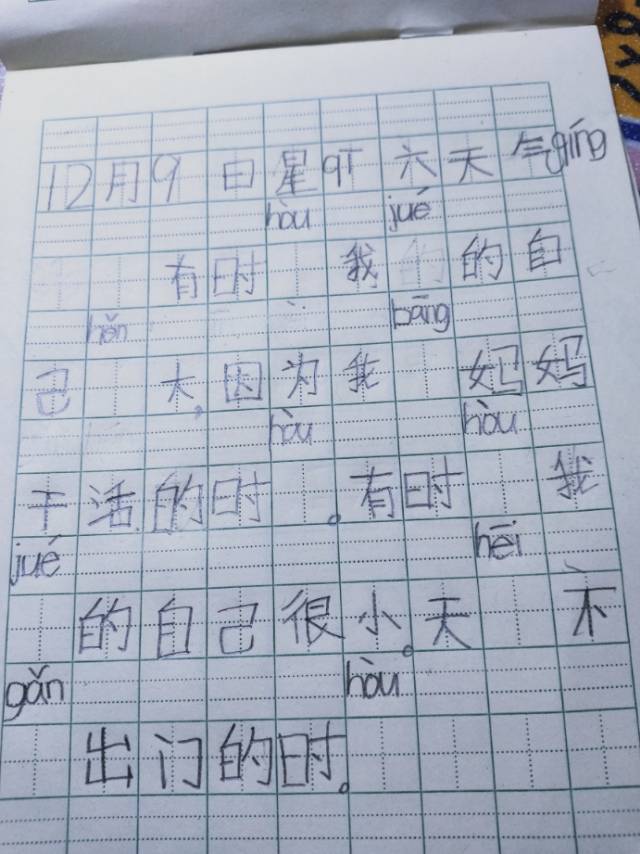 12月9日星qī六天气gíng
hòu jué
有时 我 的自
hěn bāng
己 大,因为我 妈妈
hòu hòu
干活的时 。有时 我
jué hēi
的自己很小。天 不
gǎn hòu
出门的时 。